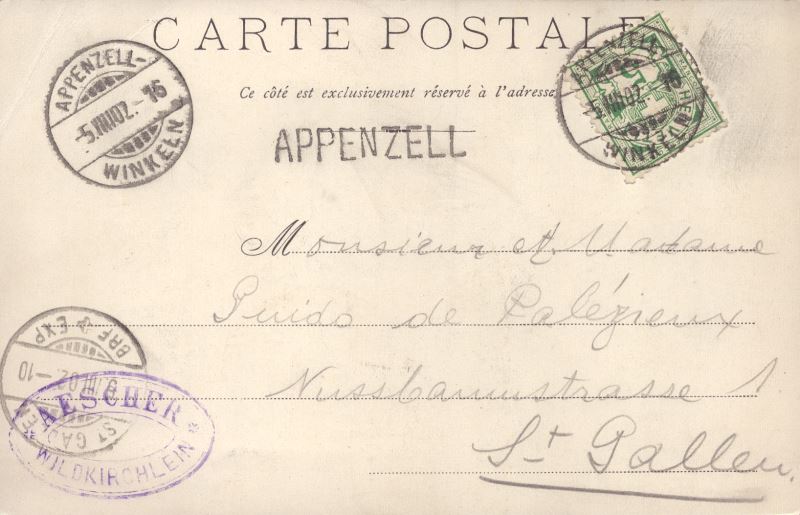 CARTE POSTALE
Ce côté est exclusivement réservé à l'adresse
APPENZELL-
-5.VIII.02.-16
WINKELN
APPENZELL-
-5.VIII.02.-16
WINKELN
5
APPENZELL
Monsieur et Madame
Guido de Palézieux
Nussbaumstrasse 1
St Gallen.
BRF EXP
VIII.02.-10
ST GALLEN
AESCHER
* WILDKIRCHLEIN *